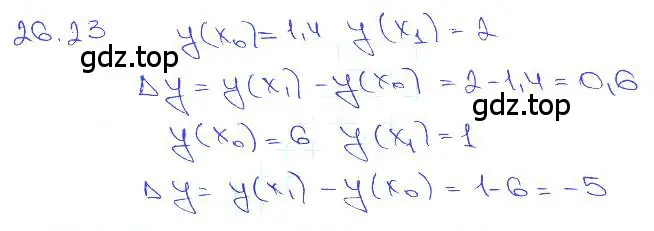 26.23 y(x₀)=1,4 y(x₁)=2
gdz.top
Δy = y(x₁) - y(x₀) = 2-1,4 = 0,6
gdz.top
y(x₀)=6 y(x₁)=1
Δy = y(x₁) - y(x₀) = 1-6 = -5